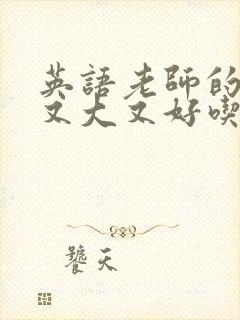 英語老師的
又大又好喫
饕天